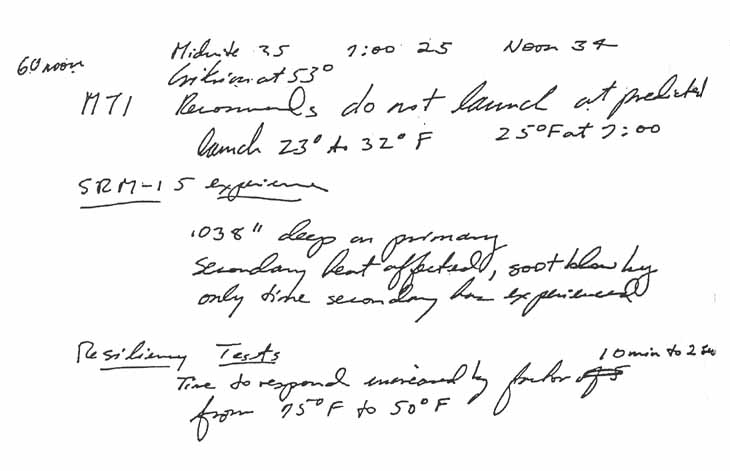 Midnite 35 7:00 25 Noon 34
60 noon
Criticism at 53°
MTI Recommends do not launch at predicted
launch 23° to 32° F 25°F at 7:00
SRM-15 experience
.038" deep on primary
secondary heat affected, soot blow by
only time secondary has experienced
Resiliency Tests 10 min to 2 sec
Time to respond increased by factor of 5
from 75°F to 50°F